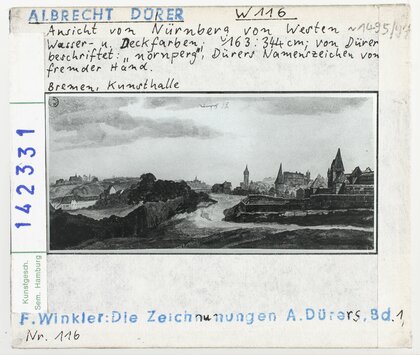 ALBRECHT DÜRER W 116
Ansicht von Nürnberg von Westen ~1495/97
Wasser- u. Deckfarben; 163:344cm; von Dürer
beschriftet: "nörnperg", Dürers Namenszeichen von
fremder Hand.
Bremen, Kunsthalle
142331
Kunstgesch.
Sem. Hamburg
F. Winkler: Die Zeichnungen A. Dürers, Bd. 1,
Nr. 116